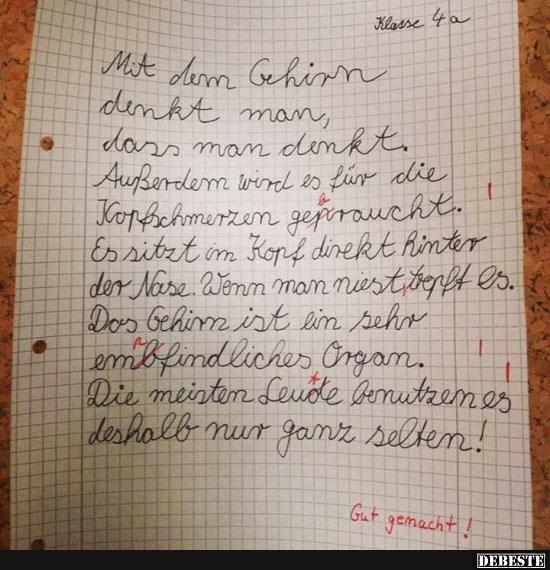 Klasse 4a
Mit dem Gehirn
denkt man,
dass man denkt.
Außerdem wird es für die
Kopfschmerzen gepraucht.
b
Es sitzt im Kopf direkt hinter
der Nase. Wenn man niest, tropft es.
Das Gehirn ist ein sehr
embfindliches Organ.
p
Die meisten Leude benutzen es
t
deshalb nur ganz selten!
Gut gemacht!
DEBESTE